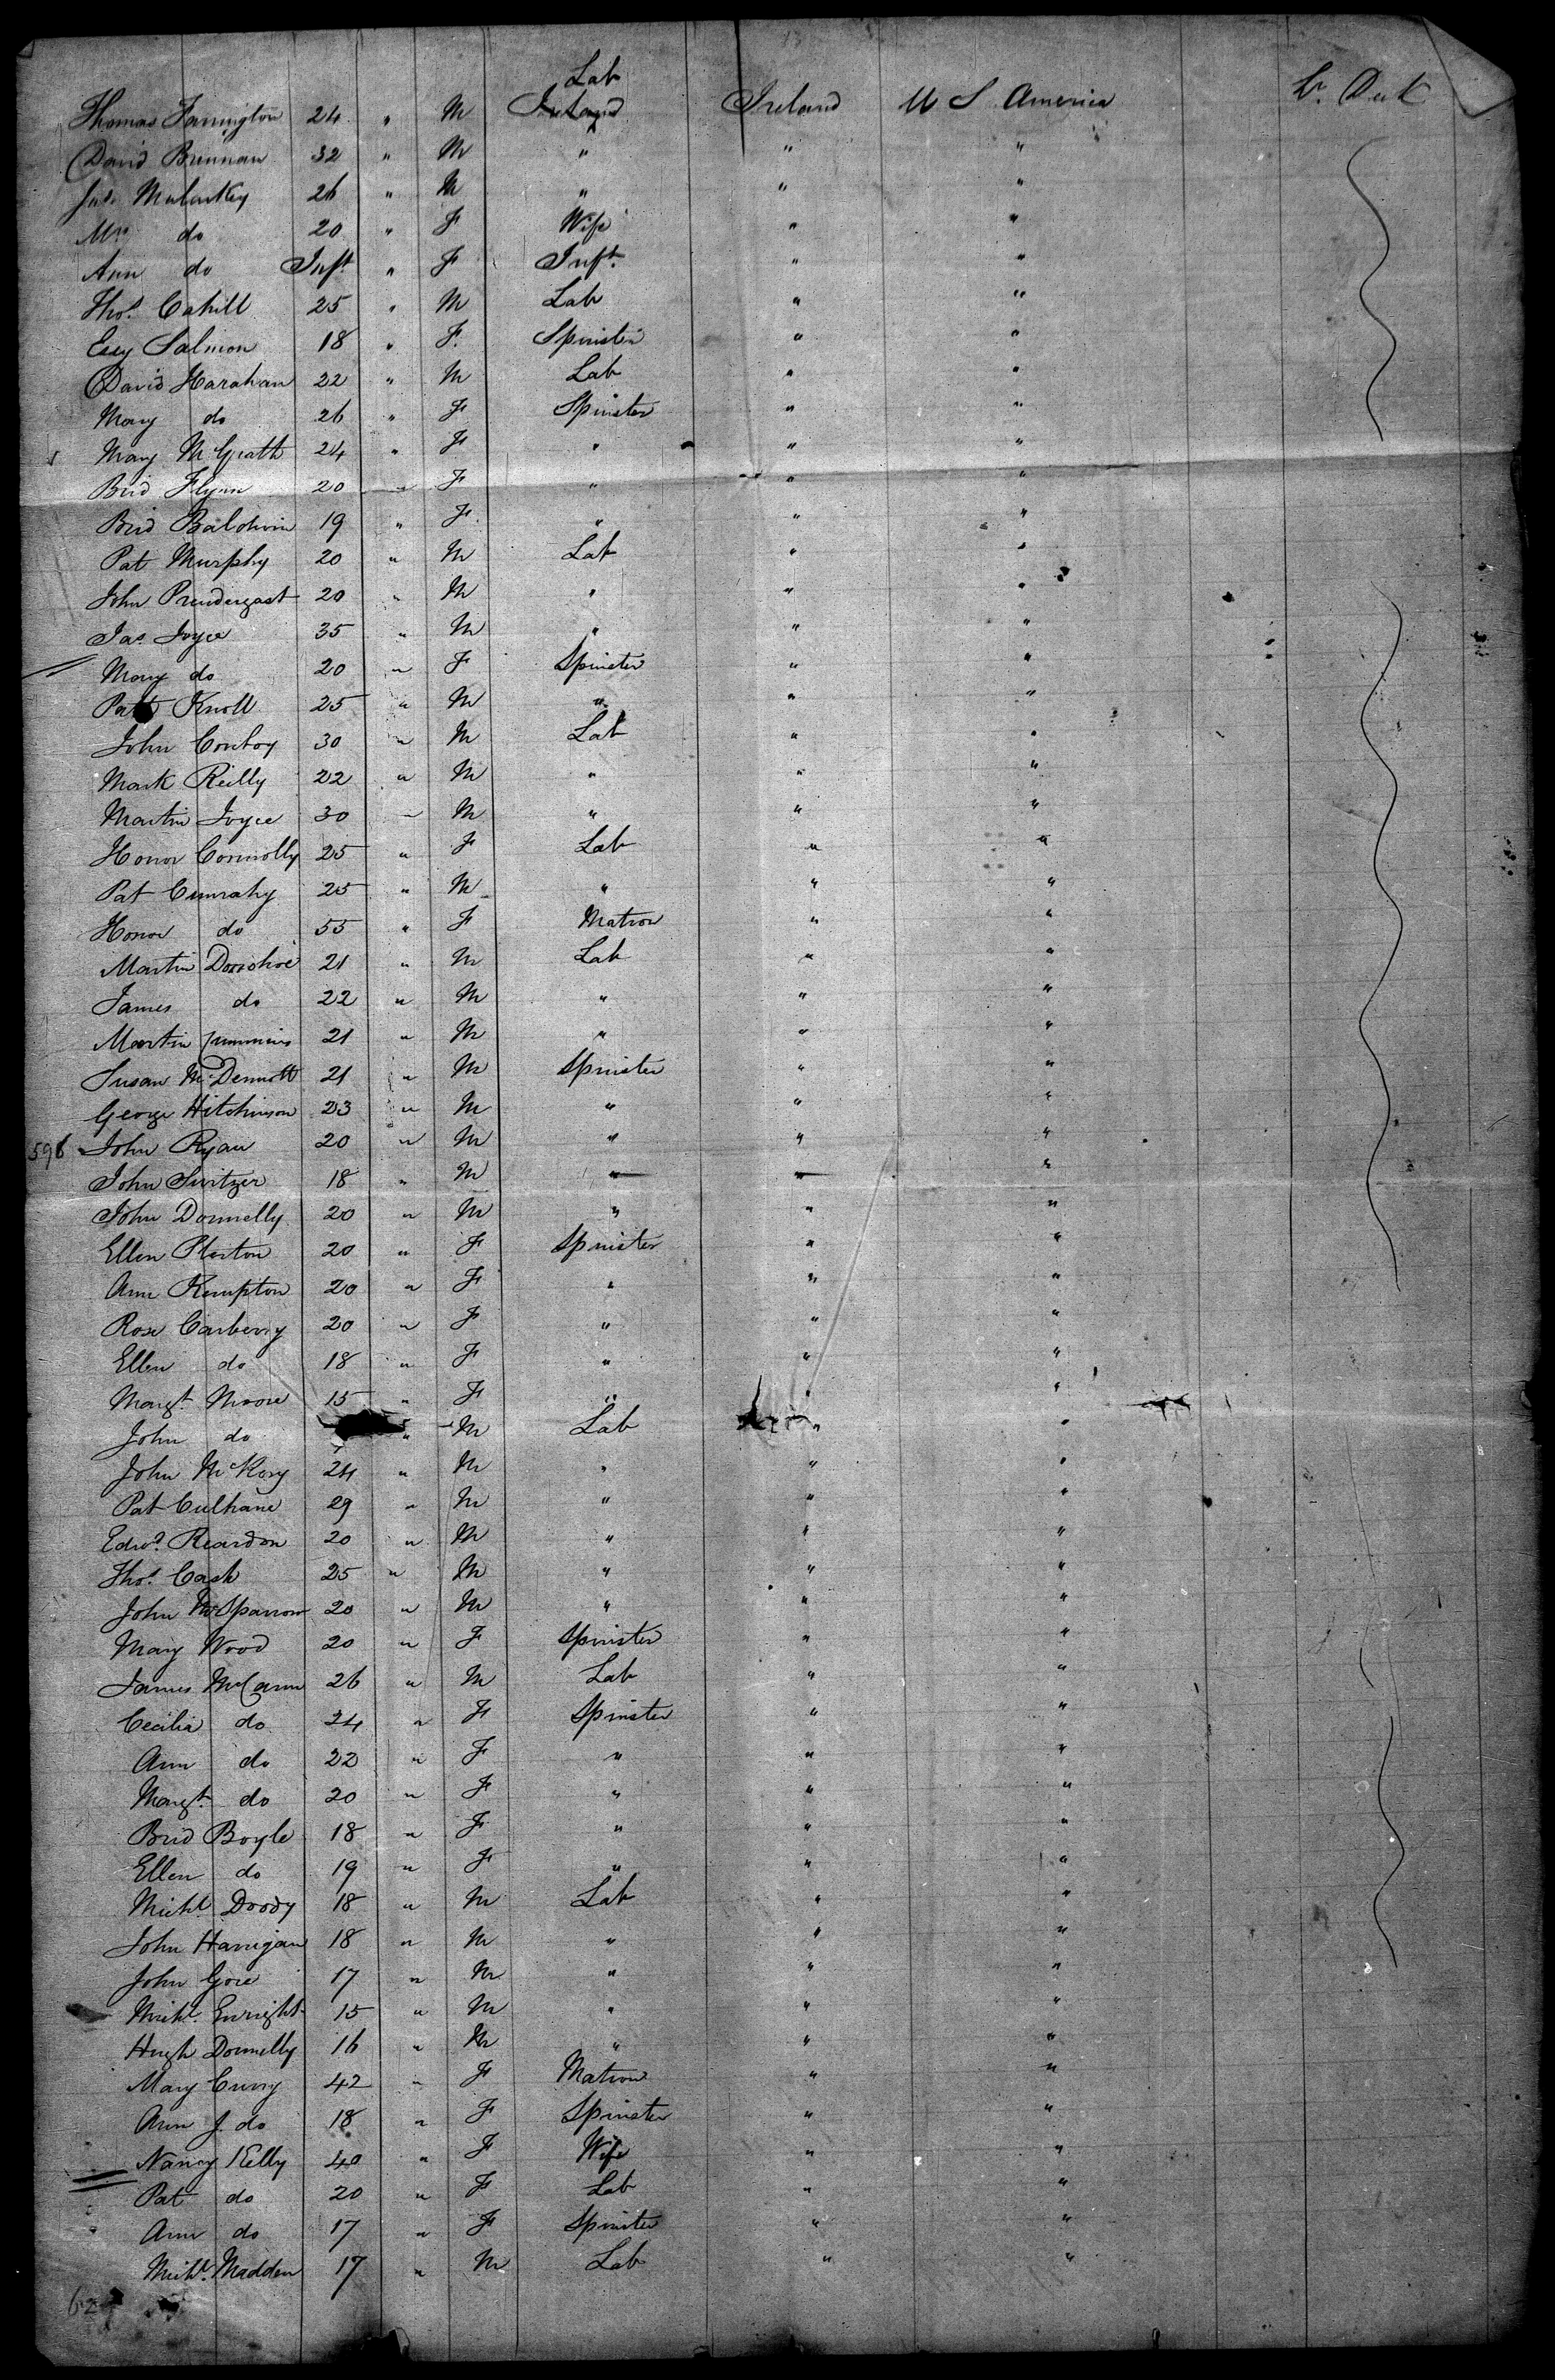 Lab
Thomas Farrington 24 " M Ireland Ireland U S America Lr. Deck
David Brennan 32 " M " " "
Jas. Mularkey 26 " M " " "
Mrs do 20 " F Wife " "
Ann do Inft " F Inft. " "
Thos. Cahill 25 " M Lab " "
Essy Salmon 18 " F. Spinster " "
David Harahan 22 " M Lab " "
Mary do 26 " F Spinster " "
Mary McGrath 24 " F " " "
Brid Flynn 20 " F " " "
Brid Baldwin 19 " F. " " "
Pat Murphy 20 " M Lab " "
John Prendergast 20 " M " " "
Jas. Joyce 35 " M " " "
Mary do 20 " F Spinster " "
Patt Knoll 25 " M " " "
John Conboy 30 " M Lab " "
Mark Reilly 22 " M " " "
Martin Joyce 30 " M " " "
Honor Connolly 25 " F Lab " "
Pat Cunrahy 25 " M " " "
Honor do 55 " F Matron " "
Martin Donohoe 21 " M Lab " "
James do 22 " M " " "
Martin Cummins 21 " M " " "
Susan McDermott 21 " M Spinster " "
George Hitchinson 23 " M " " "
596 John Ryan 20 " M " " "
John Switzer 18 " M " " "
John Donnelly 20 " M " " "
Ellen 20 " F Spinster " "
Ann Kempton 20 " F " " "
Rose Carberry 20 " F " " "
Ellen do 18 " F " " "
Margt. Moore 15 " F " " "
John do " M Lab " "
John McKory 24 " M " " "
Pat Culhane 29 " M " " "
Edwd. Reardon 20 " M " " "
Thos. Cash 25 " M " " "
John McSparron 20 " M " " "
Mary Wood 20 " F Spinster " "
James McCann 26 " M Lab " "
Cecilia do 24 " F Spinster " "
Ann do 22 " F " " "
Margt. do 20 " F " " "
Brid Boyle 18 " F " " "
Ellen do 19 " F " " "
Michl. Doody 18 " M Lab " "
John Hanigan 18 " M " " "
John Gore 17 " M " " "
Michl. Enright 15 " M " " "
Hugh Donnelly 16 " M " " "
Mary Curry 42 " F Matron " "
Ann J. do 18 " F Spinster " "
Nancy Kelly 40 " F Wife " "
Pat do 20 " F Lab " "
Ann do 17 " F Spinster " "
Michl. Madden 17 " M Lab " "
62